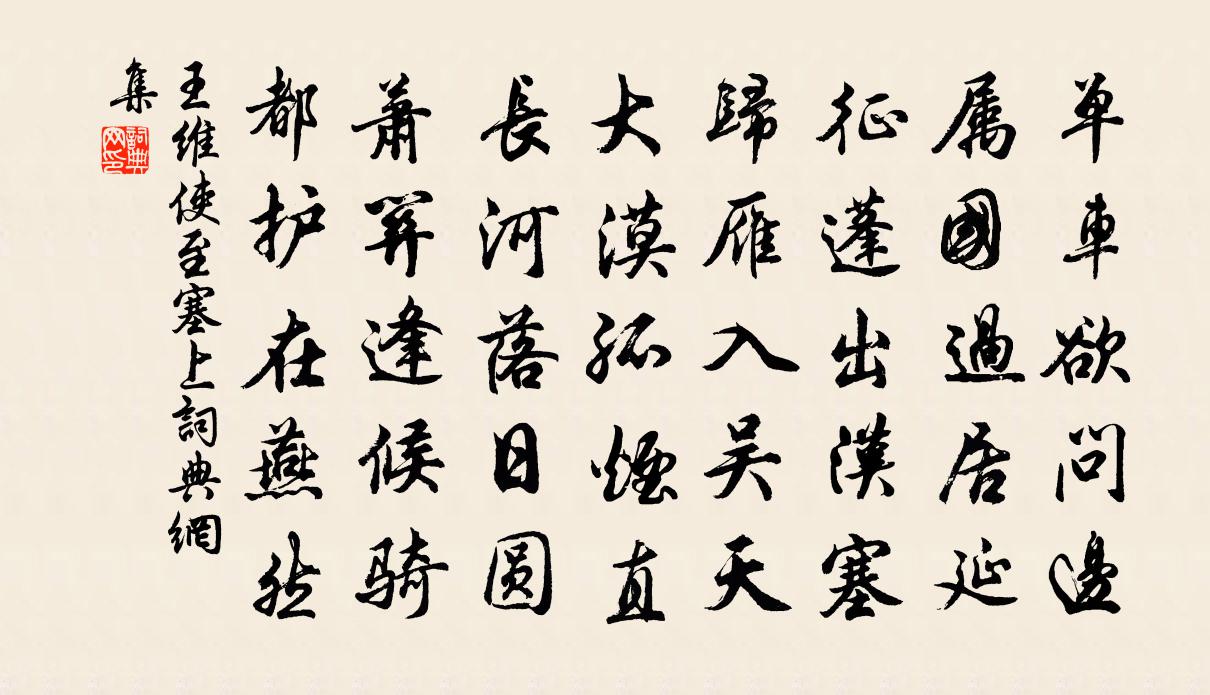 单車欲問邊
属國過居延
征蓬出漢塞
歸雁入吴天
大漠孤煙直
長河落日圆
萧關逢候騎
都护在燕然
王維使至塞上詞典網
集
詞典
网印